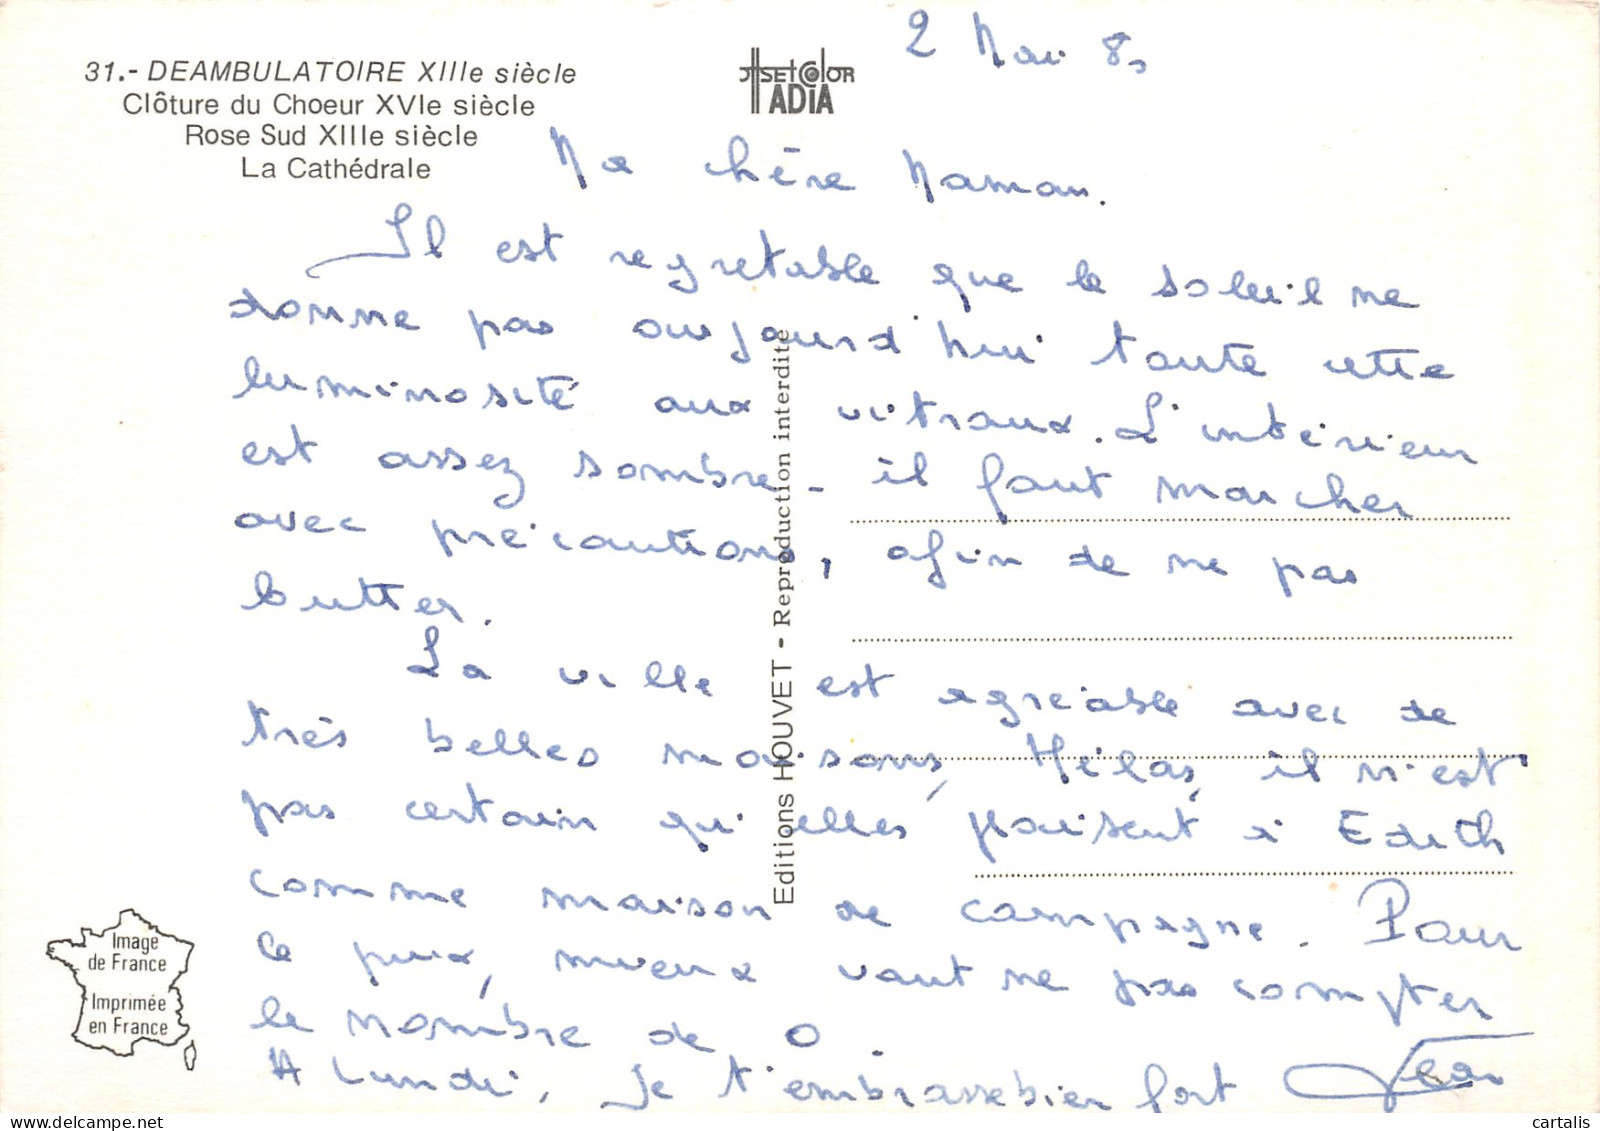 31.- DEAMBULATOIRE XIIIe siècle
Clôture du Choeur XVIe siècle
Rose Sud XIIIe siècle
La Cathédrale
OFFSET COLOR
IADIA
2 Mai 8
Ma chère Maman.
Il est regrettable que le soleil ne
donne pas aujourd'hui toute cette
luminosité aux vitraux. L'intérieur
est assez sombre - il faut marcher
avec précautions, afin de ne pas
butter.
La ville est agréable avec de
très belles maisons, Hélas, il n'est
pas certain qu'elles plaisent à Edith
comme maison de campagne. Pour
le prix, mieux vaut ne pas compter
le nombre de 0
A Lundi, je t'embrasse bien fort Jean
Editions HOUVET - Reproduction interdite
Image
de France
Imprimée
en France
cartalis